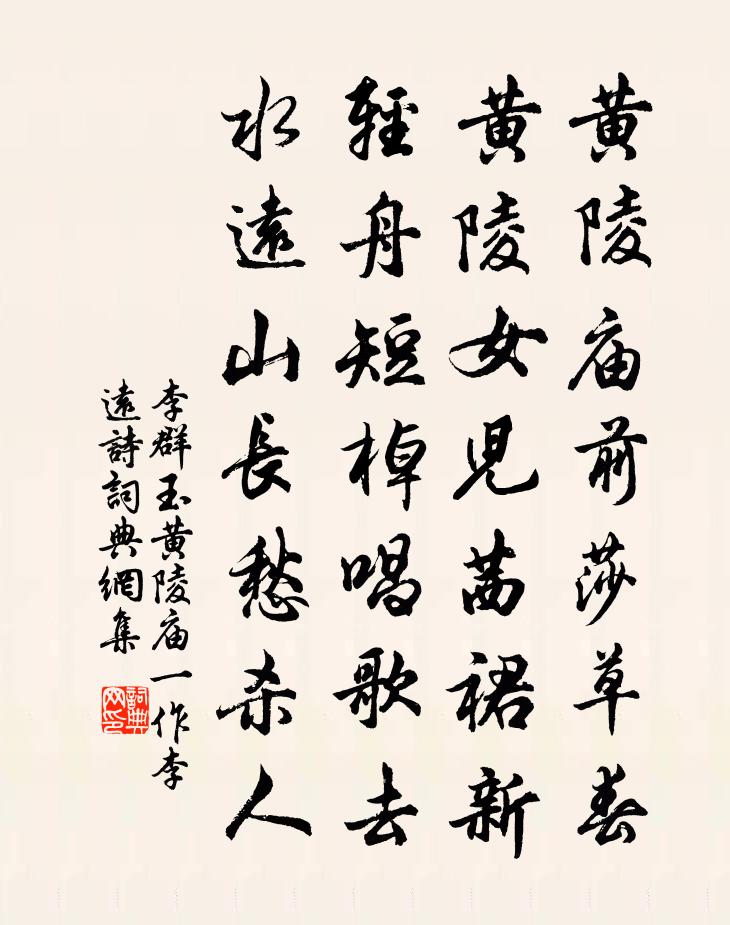 黄陵庙前莎草春
黄陵女児茜裙新
輕舟短棹唱歌去
水遠山長愁杀人
李群玉黄陵庙一作李
遠詩詞典網集
詞典网印